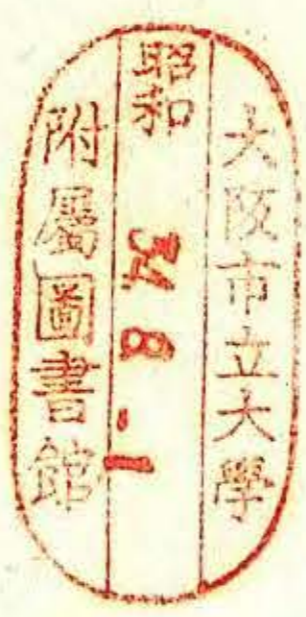 大阪市立大學
昭和 34 8 -1
附屬圖書館